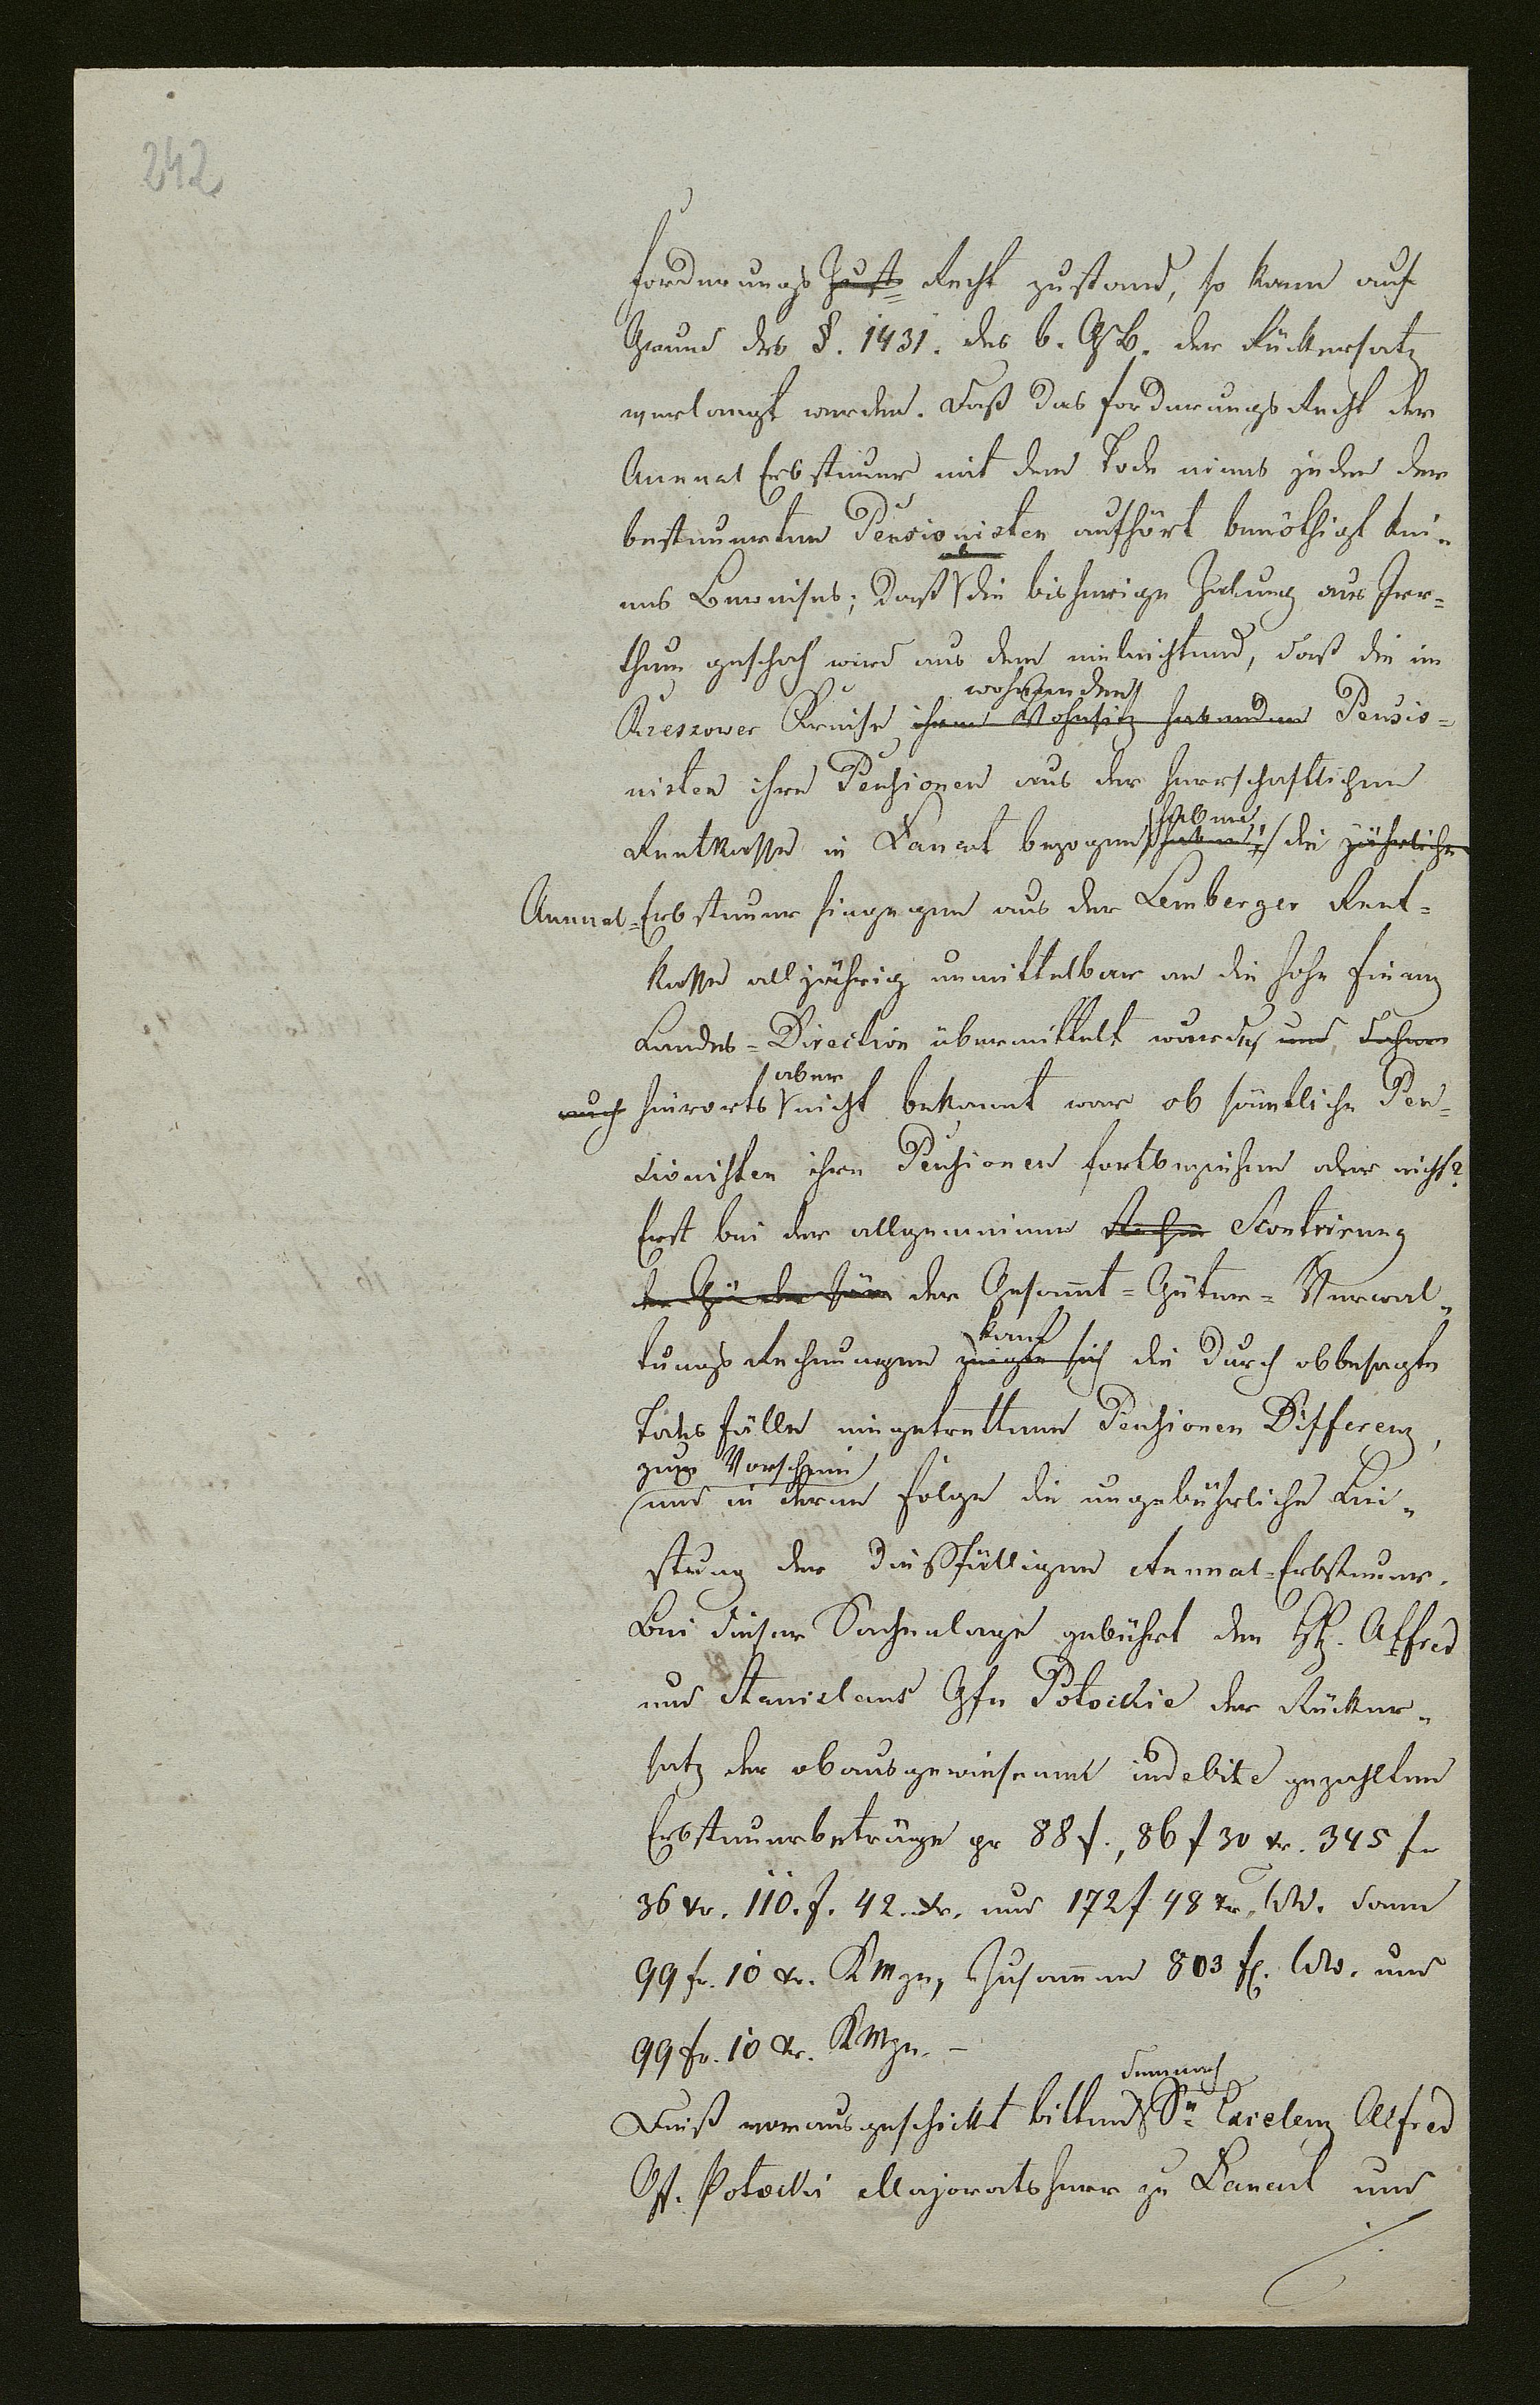 242
Forderungs Zust= Recht zustand, so kann auf
Grund des §. 1431. des b. GB. der Rückersatz
verlangt werden. Daß das Forderungs Recht der
Annual Erbsteuer mit dem Tode eines jeden der
besteuerten Pensionisten aufhört benöthigt kei-
nes Beweises; daß die bisherige Zalung aus Irr=
thum geschah wird aus dem einleuchtend, daß die im
wohnenden
Rzeszower Kreise ihren Wohnsitz habenden Pensio=
nisten ihre Pensionen aus der herrschaftlichen
haben,
Rentkasse in Lancut bezogen haben, die jährliche
Annual=Erbsteuer hingegen aus der Lemberger Rent=
kasse alljährig unmittelbar an die hohe Finanz
Landes=Direction übermittelt wurde, und daher
aber
auch hierorts nicht bekannt war ob sämtliche Pen=
sionisten ihre Pensionen fortbeziehen oder nicht?
Erst bei der allgemeinen Rechn Scontrirung
der Gesammt=Güter=Verwal-
kam
tungs Rechnungen zeigte sich die durch obbesagte
Todesfälle eingetrettene Pensionen Differenz,
zum Vorschein
und in deren Folge die ungebührliche Lei-
stung der dießfälligen Annual=Erbsteuer.
Bei dieser Sachenlage gebührt den Alfred
und Stanislaus Gfn Potockie der Rücker-
satz der obausgewiesenen indebite gezahlten
Erbsteuerbeträge pr 88 f., 86 f 30 xr. 345 fr
36 xr. 110. f. 42. xr. und 172 f 48 xr. WW. dann
99 fr. 10 xr. KMze, Zusammen 803 f. WW. und
99 fr. 10 xr. KMze. –
demnach
Dieß vorausgeschickt bitten Se Excelenz Alfred
Gf. Potocki Majoratsherr zu Lancut und
./.